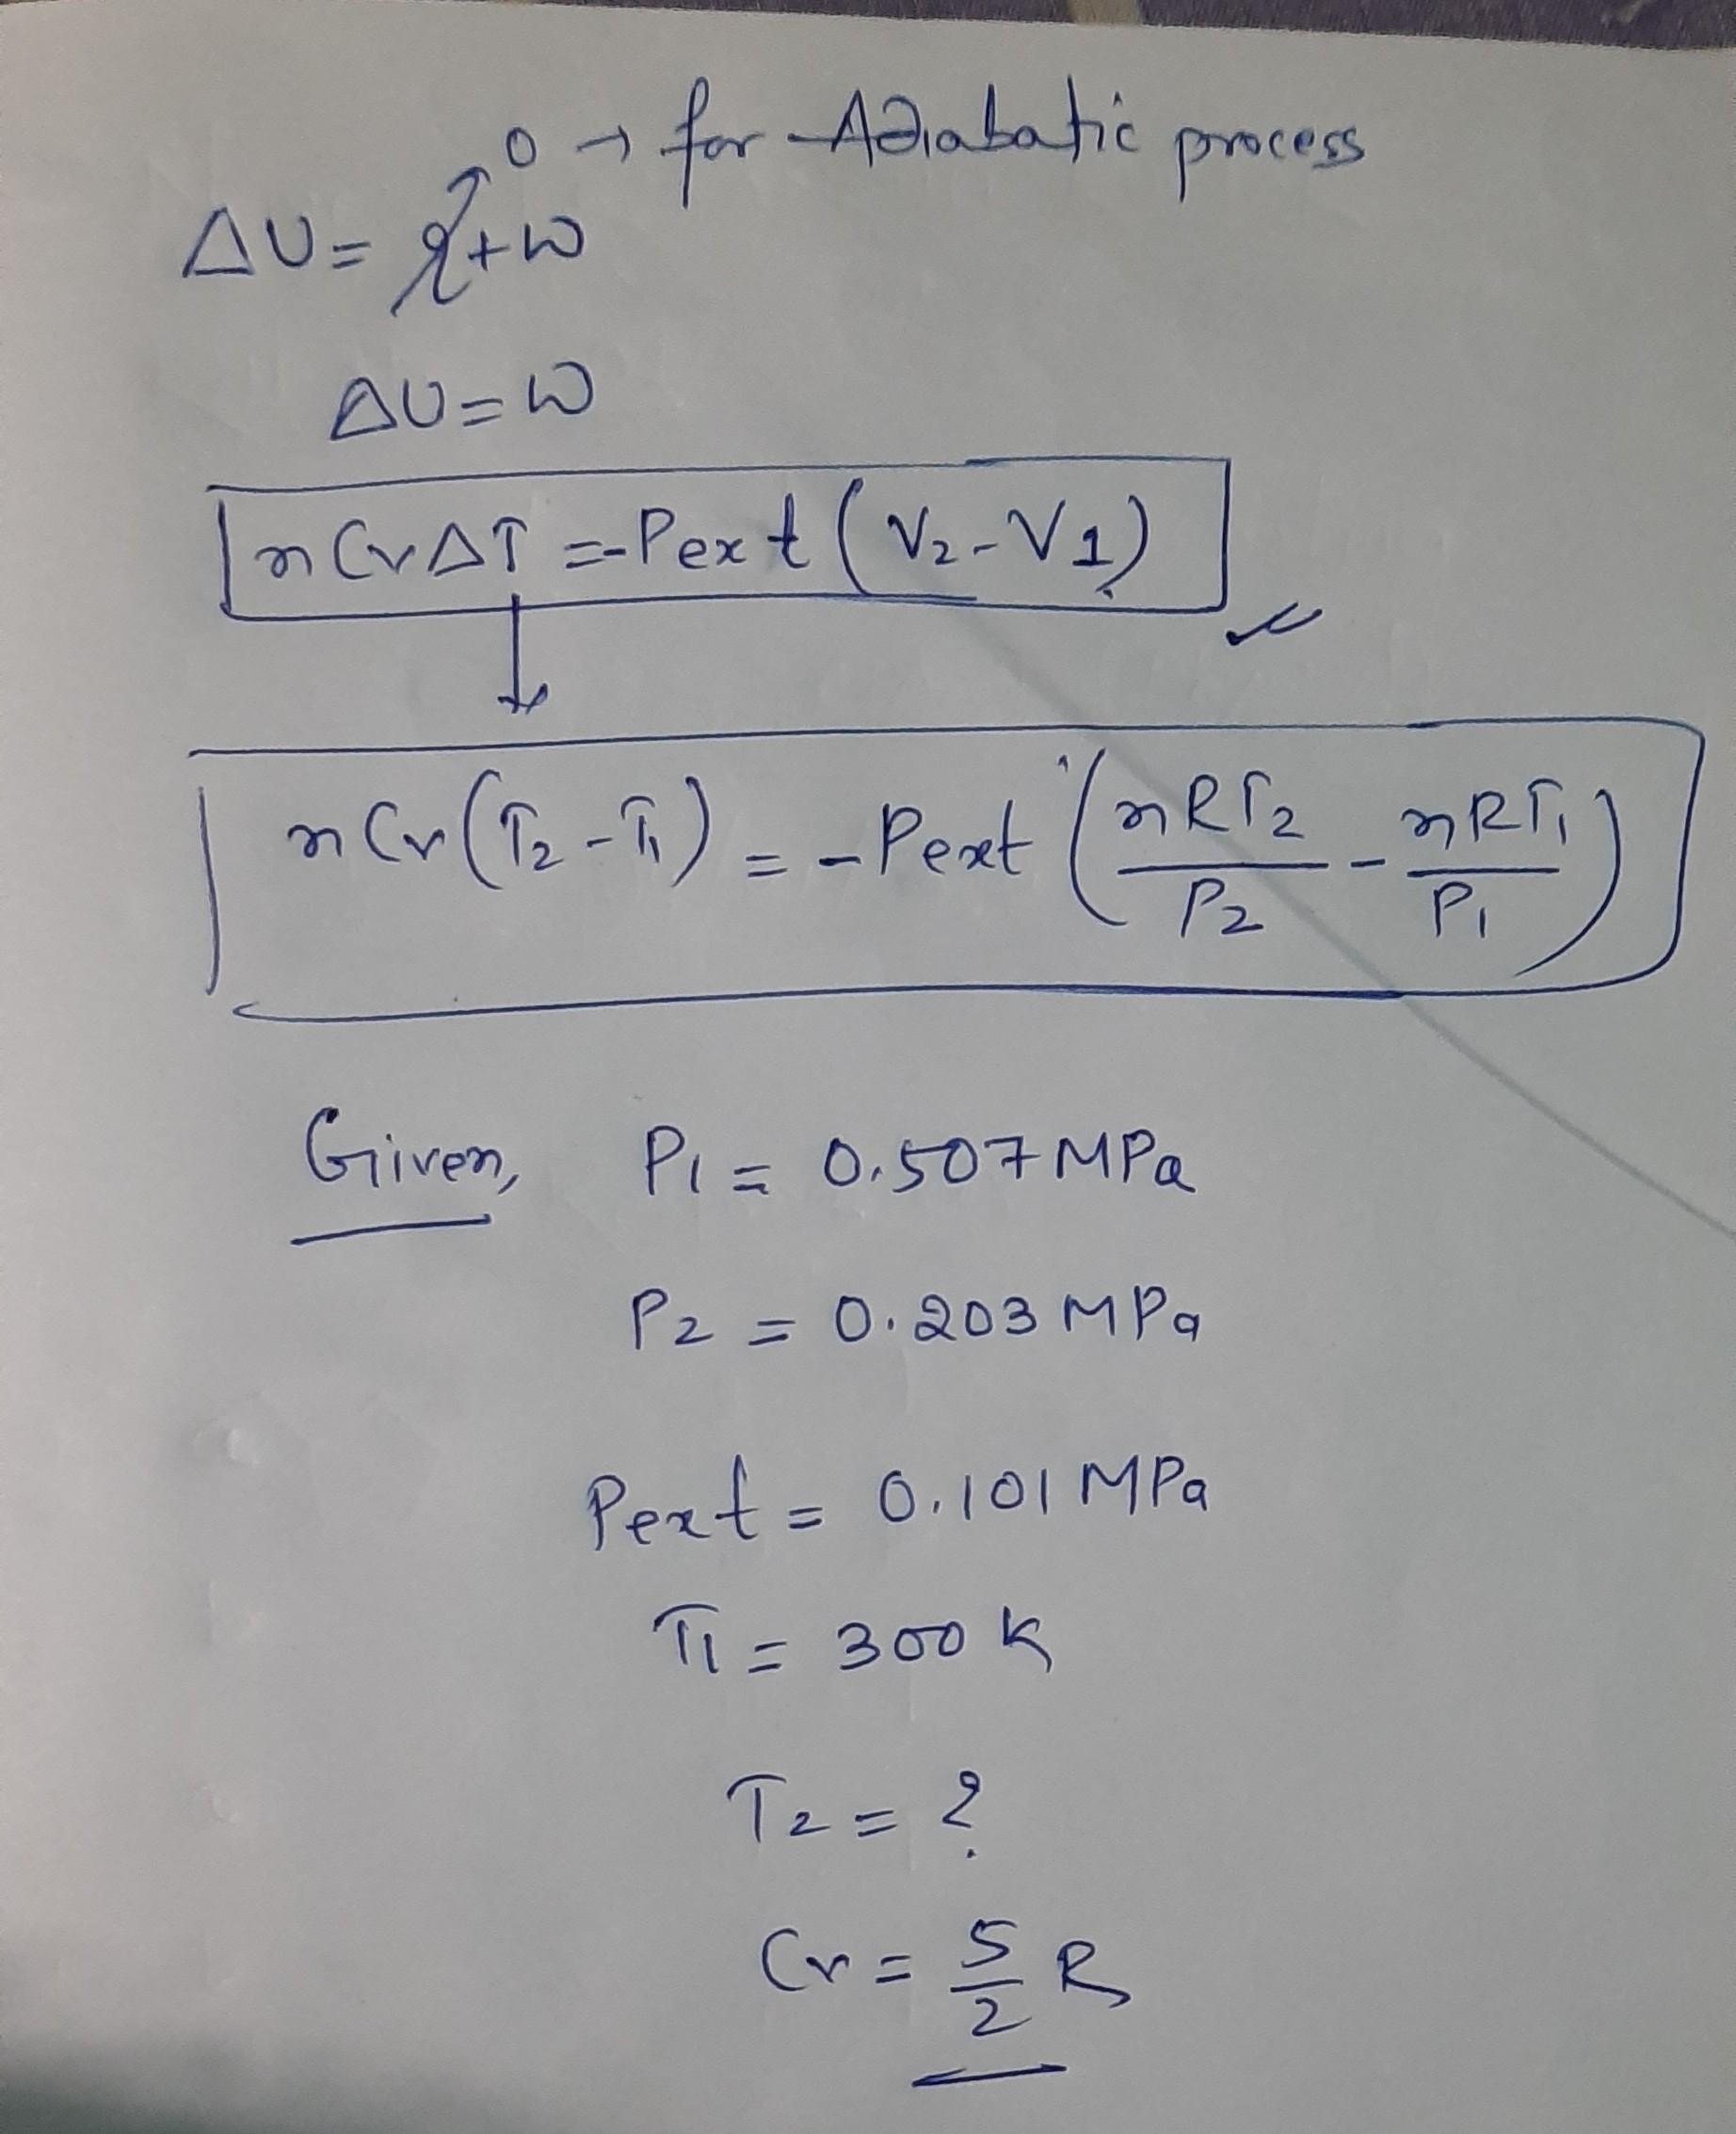 0 → for Adiabatic process
ΔU = q + W
ΔU = W
nCvΔT = -Pext (V2 - V1)
nCv (T2 - T1) = -Pext (nRT2/P2 - nRT1/P1)
Given, P1 = 0.507 MPa
P2 = 0.203 MPa
Pext = 0.101 MPa
T1 = 300 K
T2 = ?
Cv = 5/2 R